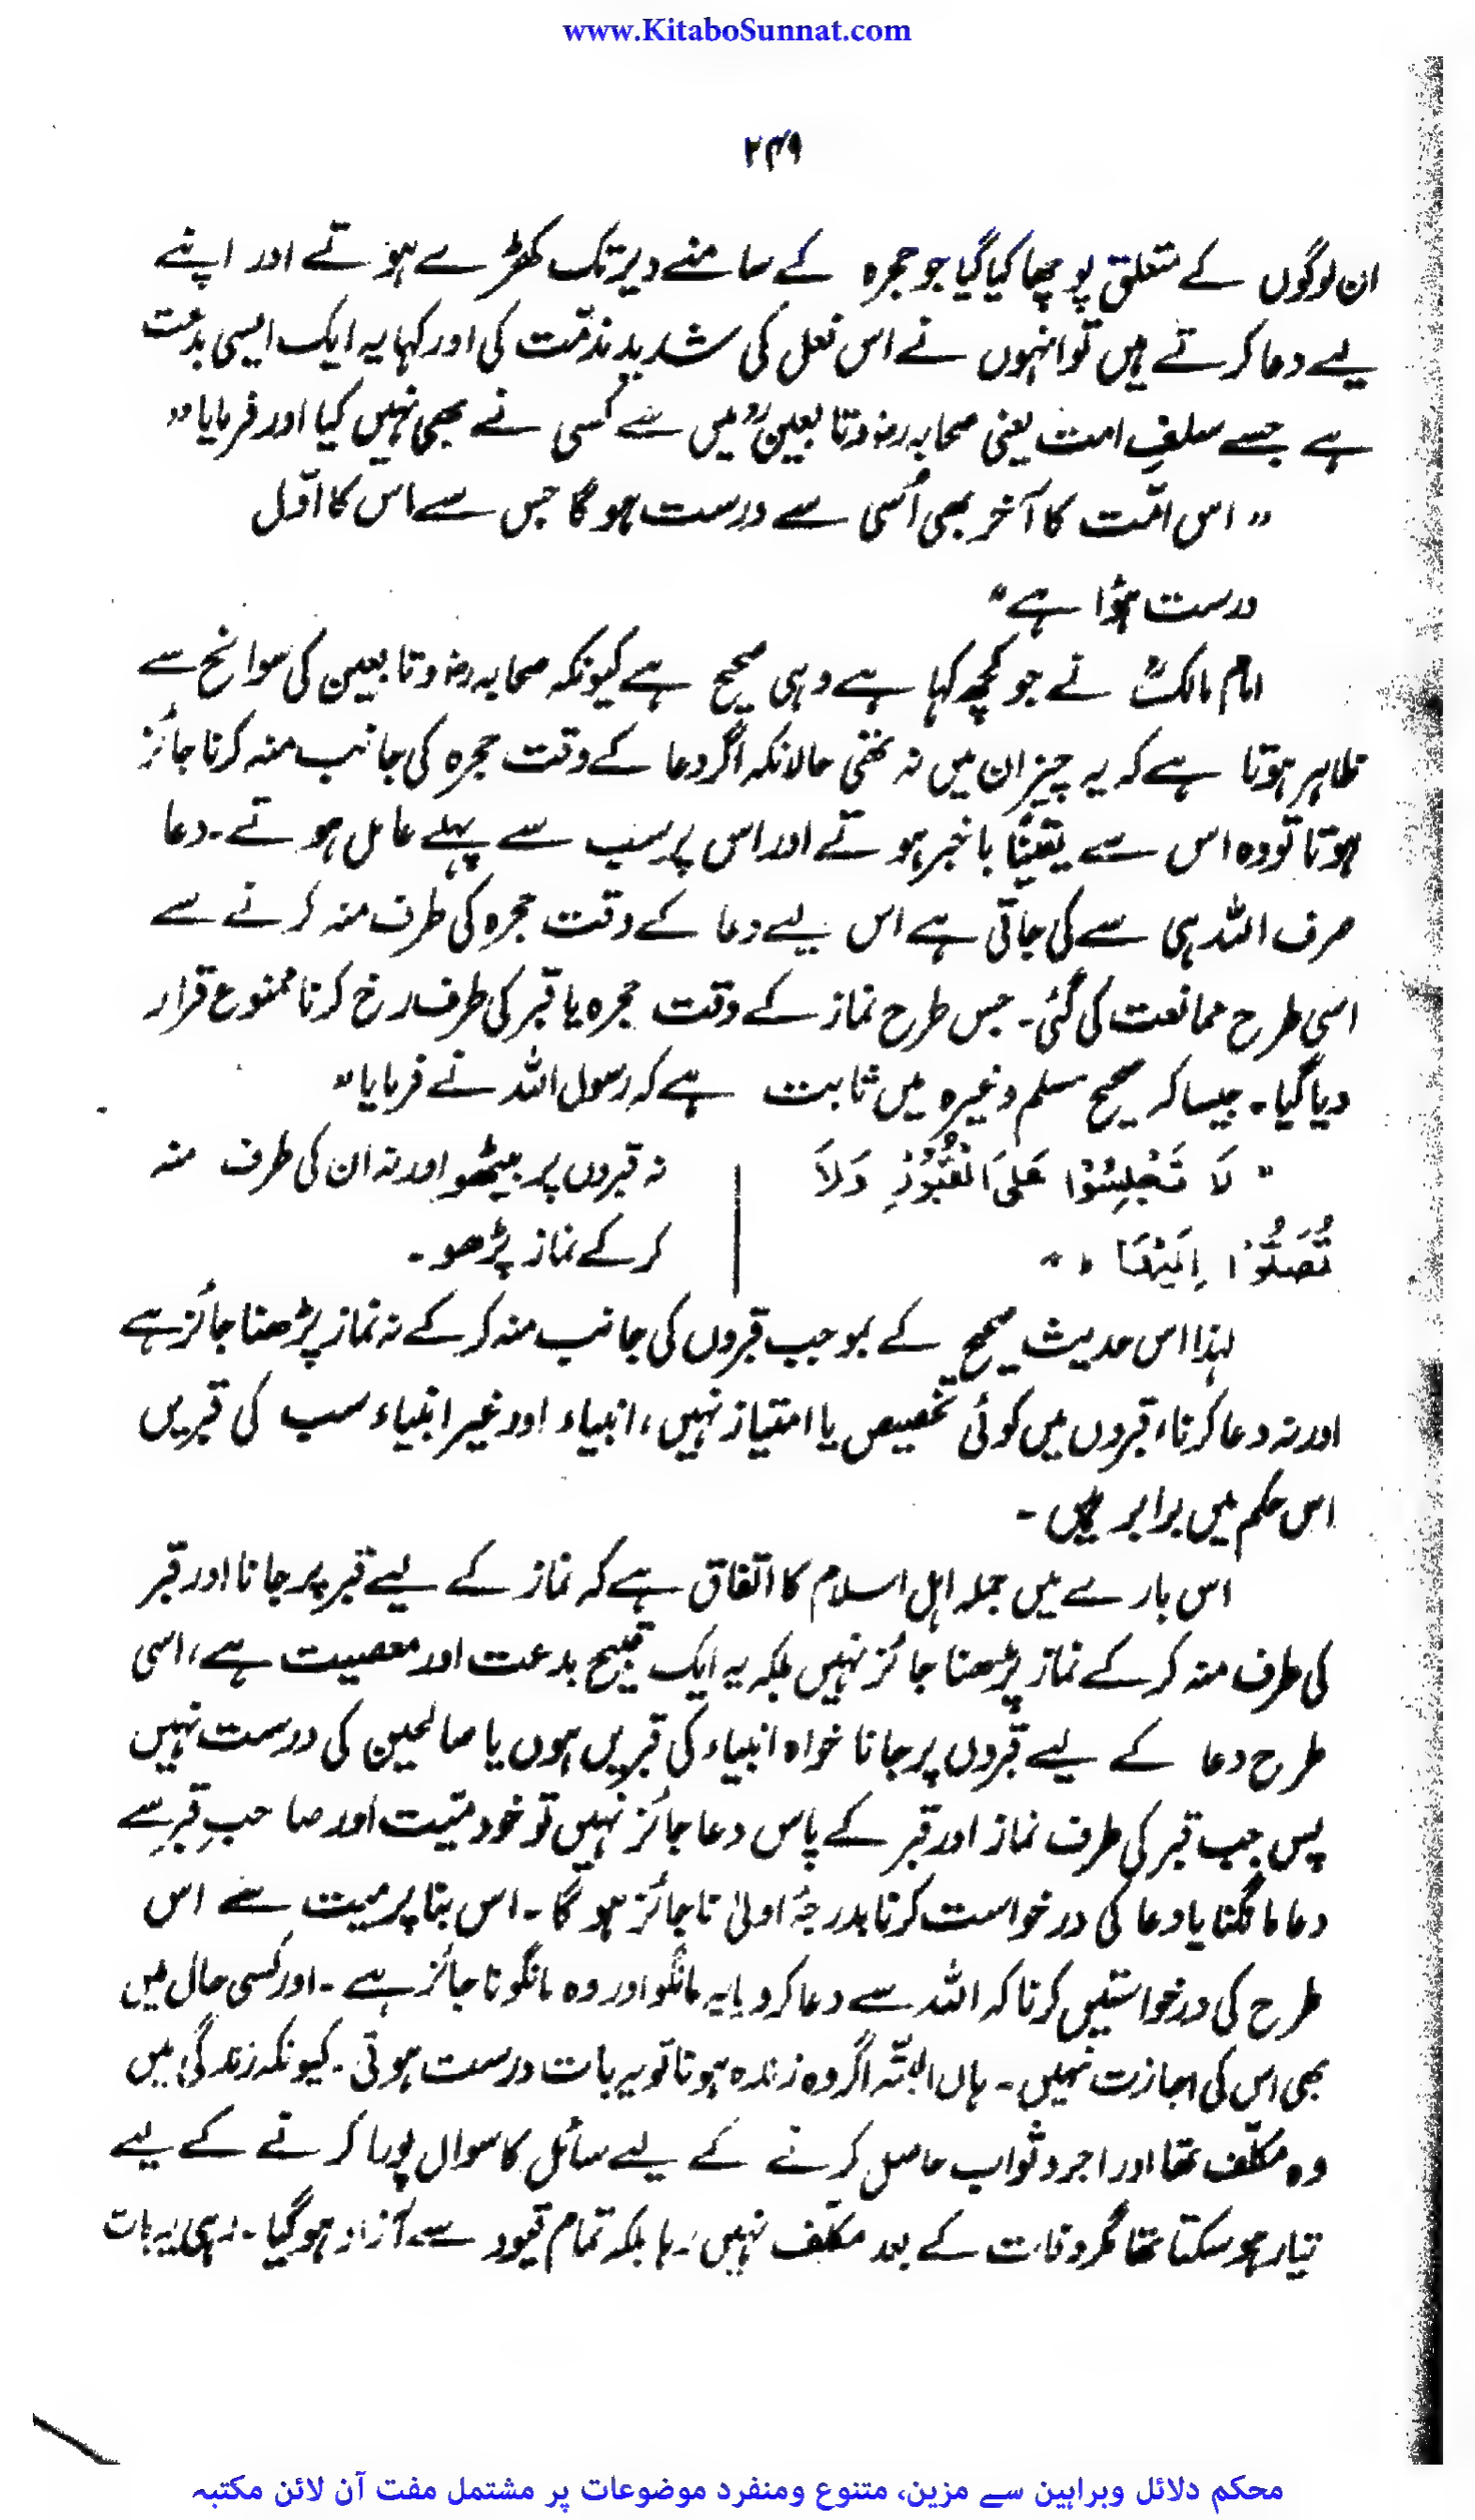 www.KitaboSunnat.com
۲۴۹
ان لوگوں کے متعلق پوچھا کیا گیا جو حجرہ کے سامنے دیر تک کھڑے ہوتے اور اپنے
لیے دعا کرتے ہیں تو انہوں نے اس فعل کی شدید مذمّت کی اور کہا یہ ایک ایسی بدعت
ہے جسے سلفِ امت یعنی صحابہ رضؓ و تابعینؒ میں سے کسی نے بھی نہیں کیا اور فرمایا"
" اس امّت کا آخر بھی اُسی سے درست ہو گا جس سے اس کا اوّل
درست ہؤا ہے"
امام مالکؒ نے جو کچھ کہا ہے وہی صحیح ہے کیونکہ صحابہ رضؓ و تابعین کی سوانح سے
ظاہر ہوتا ہے کہ یہ چیز ان میں نہ تھی حالانکہ اگر دعا کے وقت حجرہ کی جانب منہ کرنا جائز
ہوتا تو وہ اس سے یقینًا باخبر ہوتے اور اس پر سب سے پہلے عامل ہوتے۔ دعا
صرف اللہ ہی سے کی جاتی ہے اس لیے دعا کے وقت حجرہ کی طرف منہ کرنے سے
اسی طرح ممانعت کی گئی۔ جس طرح نماز کے وقت حجرہ یا قبر کی طرف رخ کرنا ممنوع قرار
دیا گیا۔ جیسا کہ صحیح مسلم وغیرہ میں ثابت ہے کہ رسول اللہ نے فرمایا"
" لَا تَجْلِسُوْا عَلَى الْقُبُوْرِ وَلَا
تُصَلُّوْا اِلَيْهَا ۰"
نہ قبروں پر بیٹھو اور نہ ان کی طرف منہ
کر کے نماز پڑھو۔
لہٰذا اس حدیث صحیح کے بموجب قبروں کی جانب منہ کر کے نہ نماز پڑھنا جائز ہے
اور نہ دعا کرنا، قبروں میں کوئی تخصیص یا امتیاز نہیں، انبیاء اور غیر انبیاء سب کی قبریں
اس حکم میں برابر ہیں۔
اس بارے میں جملہ اہل اسلام کا اتفاق ہے کہ نماز کے لیے قبر پر جانا اور قبر
کی طرف منہ کر کے نماز پڑھنا جائز نہیں بلکہ یہ ایک قبیح بدعت اور معصیت ہے، اسی
طرح دعا کے لیے قبروں پر جانا خواہ انبیاء کی قبریں ہوں یا صالحین کی درست نہیں
پس جب قبر کی طرف نماز اور قبر کے پاس دعا جائز نہیں تو خود میّت اور صاحبِ قبر سے
دعا مانگنا یا دعا کی درخواست کرنا بدرجۂ اولیٰ ناجائز ہو گا۔ اس بنا پر میت سے اس
طرح کی درخواستیں کرنا کہ اللہ سے دعا کرو یا یہ مانگو اور وہ مانگو ناجائز ہے۔ اور کسی حال میں
بھی اس کی اجازت نہیں۔ ہاں البتّہ اگر وہ زندہ ہوتا تو یہ بات درست ہوتی۔ کیونکہ زندگی میں
وہ مکلّف تھا اور اجر و ثواب حاصل کرنے کے لیے سائل کا سوال پورا کرنے کے لیے
تیار ہو سکتا تھا مگر وفات کے بعد مکلّف نہیں رہا بلکہ تمام قیود سے آزاد ہو گیا۔ رہی یہ بات
محکم دلائل وبراہین سے مزین، متنوع ومنفرد موضوعات پر مشتمل مفت آن لائن مکتبہ